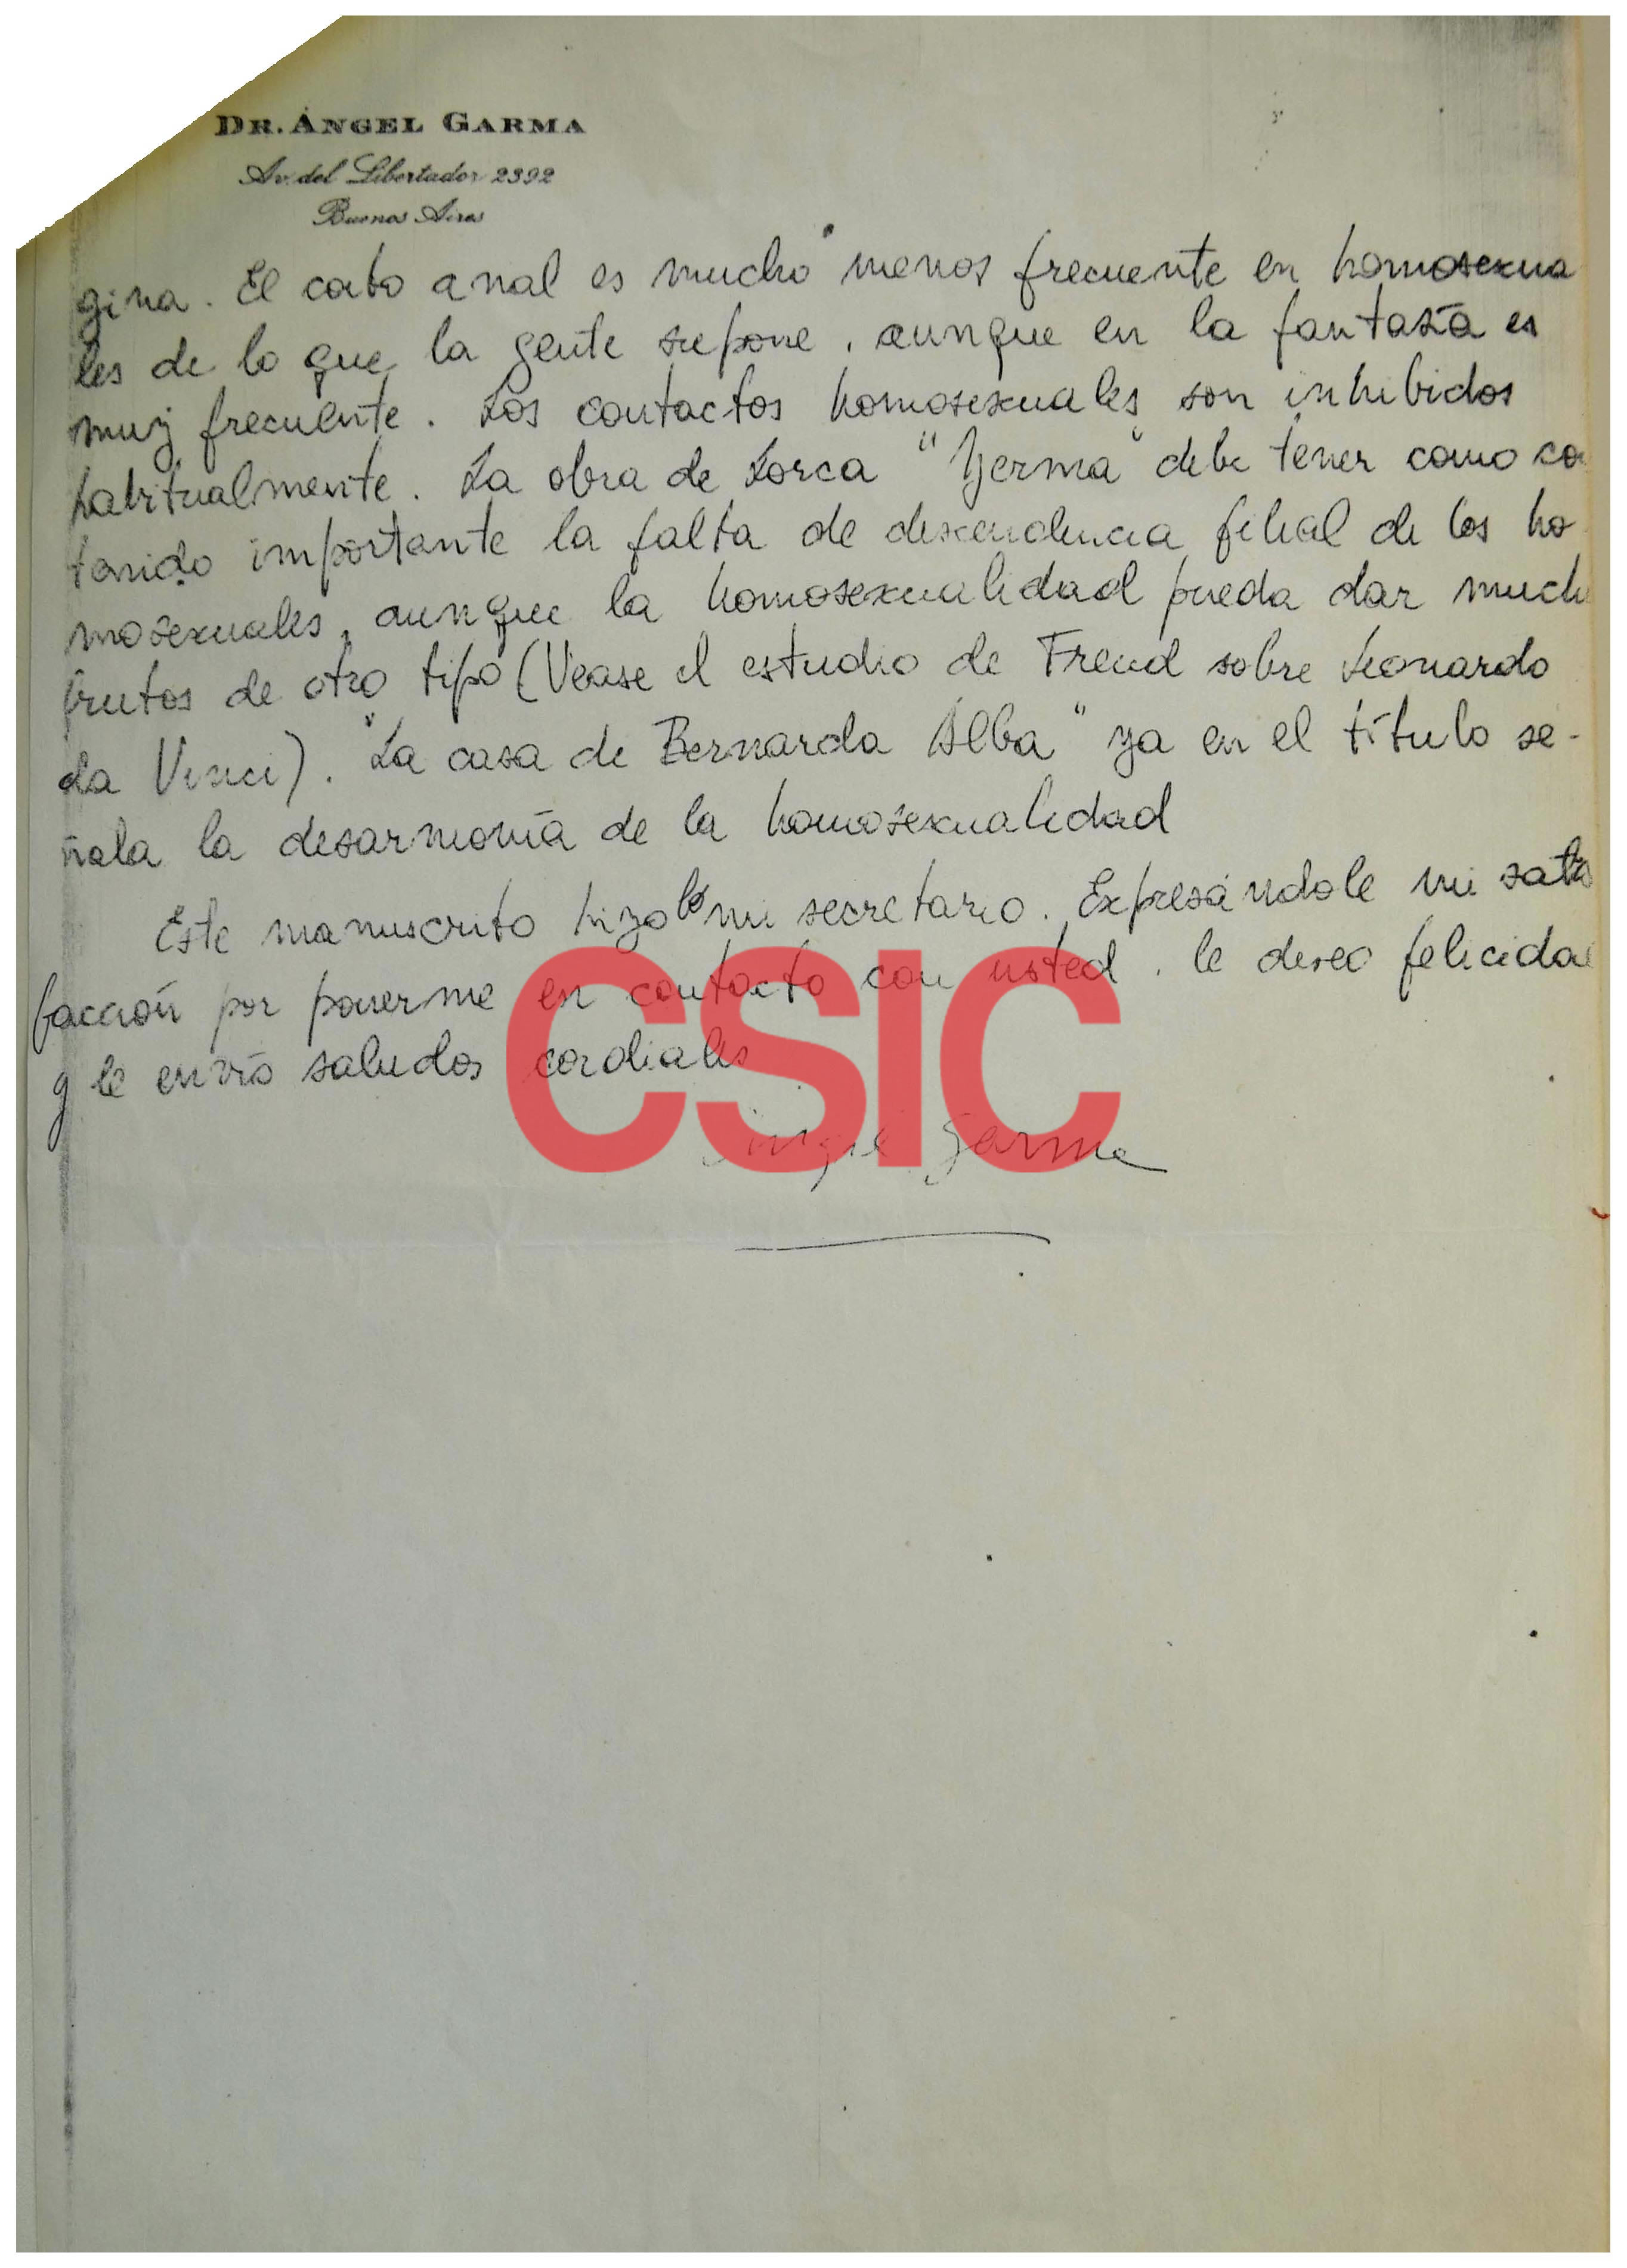 DR. ÁNGEL GARMA
Av. del Libertador 2392
Buenos Aires
gina. El coito anal es mucho menos frecuente en homosexua
les de lo que la gente supone, aunque en la fantasía es
muy frecuente. Los contactos homosexuales son inhibidos
habitualmente. La obra de Lorca "Yerma" debe tener como co
tenido importante la falta de descendencia filial de los ho
mosexuales, aunque la homosexualidad pueda dar much
frutos de otro tipo (Vease el estudio de Freud sobre Leonardo
da Vinci). "La casa de Bernarda Alba" ya en el título se-
ñala la desarmonía de la homosexualidad
Este manuscrito hizo lo mi secretario. Expresándole mi satis
facción por ponerme en contacto con usted, le deseo felicidad
y le envío saludos cordiales
Angel Garma
CSIC